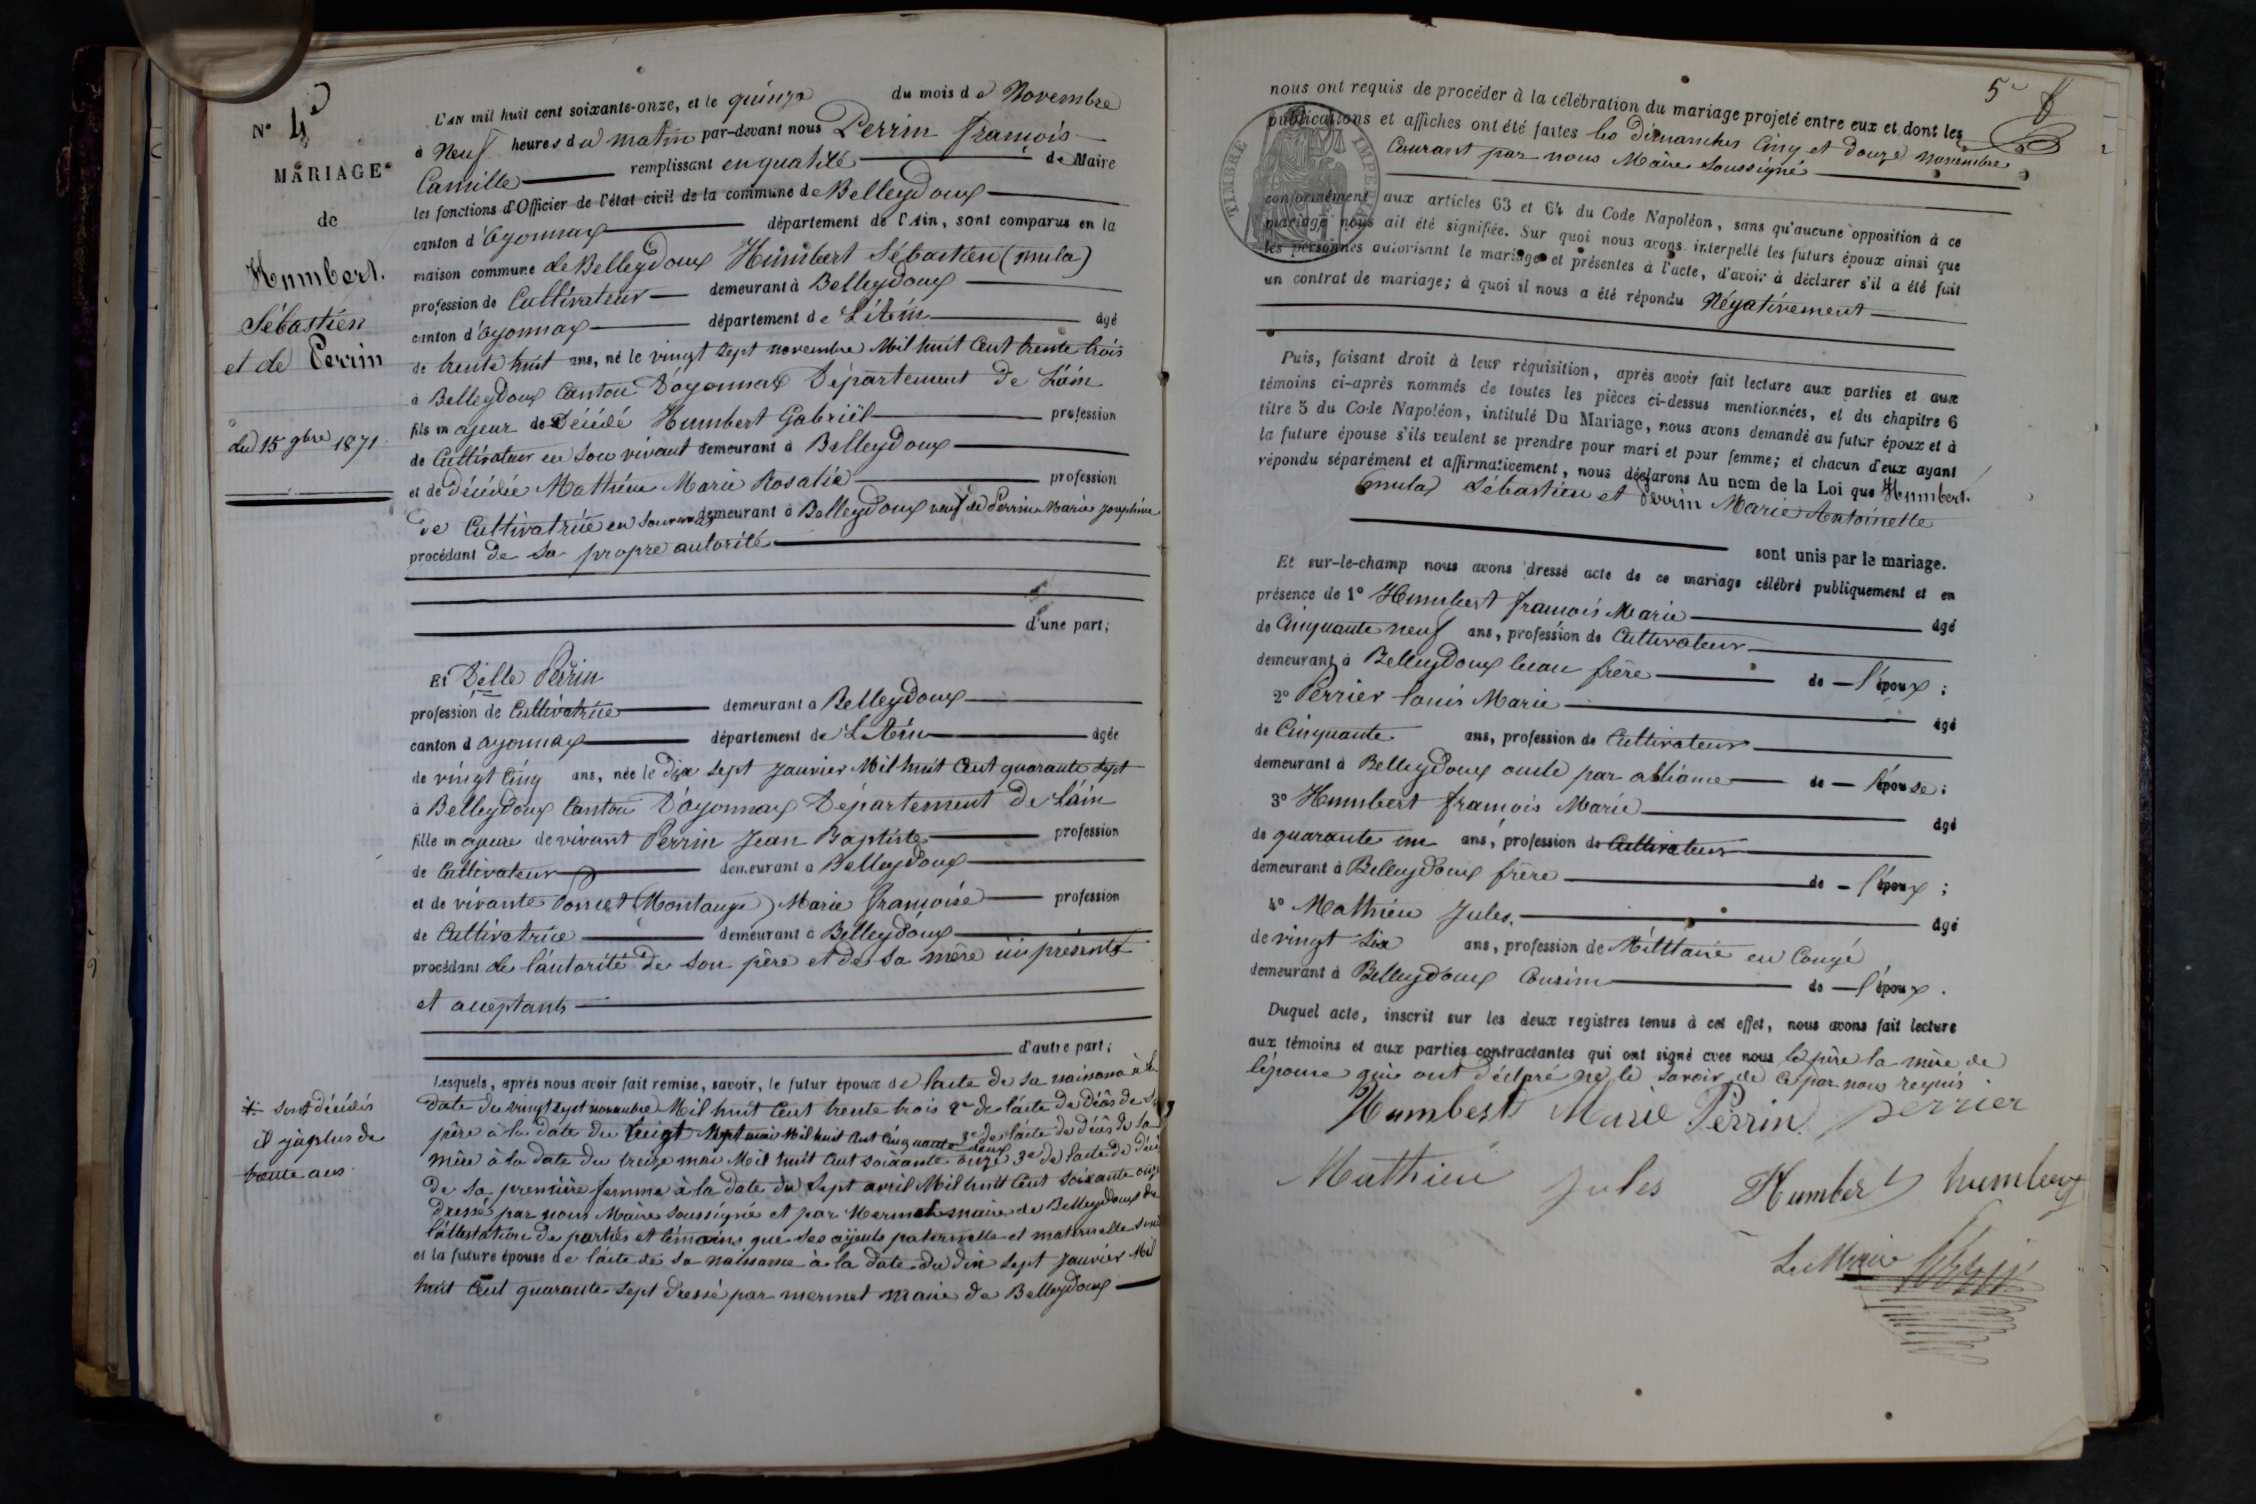 N° 4
MARIAGE
de
Humbert.
Sébastien
et de Perrin
du 15 9bre 1871
L'AN mil huit cent soixante-onze, et le quinze du mois de Novembre
à Neuf heures du matin par-devant nous Perrin françois
Camille remplissant en qualité de Maire
les fonctions d'Officier de l'état civil de la commune de Belleydoux
canton d'Oyonnax département de l'Ain, sont comparus en la
maison commune de Belleydoux Humbert Sébastien (mula)
profession de Cultivateur demeurant à Belleydoux
canton d'Oyonnax département de L'Ain âgé
de trente huit ans, né le vingt sept novembre Mil huit Cent trente trois
à Belleydoux Canton D'oyonnax Département De L'ain
fils majeur de Décédé Humbert Gabriël profession
de Cultivateur en Son vivant demeurant à Belleydoux
et de Décédée Mathieu Marie Rosalie profession
de Cultivatrice en Son vivant demeurant à Belleydoux veuf de Perrin Marie Joséphine
procédant de sa propre autorité
d'une part;
Et Délle Perrin
profession de Cultivatrice demeurant à Belleydoux
canton d'oyonnax département de L'Ain âgée
de vingt Cinq ans, née le dix sept Janvier Mil huit Cent quarante sept
à Belleydoux Canton D'oyonnax Département De L'ain
fille majeure de vivant Perrin Jean Baptiste profession
de Cultivateur demeurant à Belleydoux
et de vivante Poncet (Montange) Marie françoise profession
de Cultivatrice demeurant à Belleydoux
procédant de l'autorité de son père et de sa mère ici présents
et acceptants
d'autre part;
Lesquels, après nous avoir fait remise, savoir, le futur époux de l'acte de sa naissance à la
date du vingt sept novembre Mil huit Cent trente trois 2° de l'acte de Décès de son
père à la date du vingt sept mai Mil huit Cent Cinquante deux 3° de l'acte de décès de sa
mère à la date du treize mai Mil huit Cent soixante onze 3° de l'acte de décès
de sa première femme à la date du sept avril Mil huit Cent soixante onze
dressé par nous Maire soussigné et par Mermet maire de Belleydoux de
l'attestation de parties et témoins que ses ayeuls paternelle et maternelle sont
et la future épouse de l'acte de sa naissance à la date du dix sept Janvier Mil
huit Cent quarante sept dressé par mermet maire de Belleydoux
sont décédés
il y a plus de
trente ans
5
TIMBRE IMPERIAL
nous ont requis de procéder à la célébration du mariage projeté entre eux et dont les
publications et affiches ont été faites les dimanches Cinq et douze novembre
Courant par nous Maire soussigné
conformément aux articles 63 et 64 du Code Napoléon, sans qu'aucune opposition à ce
mariage nous ait été signifiée. Sur quoi nous avons interpellé les futurs époux ainsi que
les personnes autorisant le mariage et présentes à l'acte, d'avoir à déclarer s'il a été fait
un contrat de mariage; à quoi il nous a été répondu Négativement
Puis, faisant droit à leur réquisition, après avoir fait lecture aux parties et aux
témoins ci-après nommés de toutes les pièces ci-dessus mentionnées, et du chapitre 6
titre 5 du Code Napoléon, intitulé Du Mariage, nous avons demandé au futur époux et à
la future épouse s'ils veulent se prendre pour mari et pour femme; et chacun d'eux ayant
répondu séparément et affirmativement, nous déclarons Au nom de la Loi que Humbert.
(mula) Sébastien et Perrin Marie Antoinette
sont unis par le mariage.
Et sur-le-champ nous avons dressé acte de ce mariage célébré publiquement et en
présence de 1° Humbert françois Marie âgé
de Cinquante neuf ans, profession de Cultivateur
demeurant à Belleydoux beau frère de l'époux;
2° Perrier louis Marie âgé
de Cinquante ans, profession de Cultivateur
demeurant à Belleydoux oncle par alliance de l'épouse;
3° Humbert françois Marie âgé
de quarante un ans, profession de Cultivateur
demeurant à Belleydoux frère de l'époux;
4° Mathieu Jules, âgé
de vingt six ans, profession de Militaire en Congé
demeurant à Belleydoux Cousin de l'époux.
Duquel acte, inscrit sur les deux registres tenus à cet effet, nous avons fait lecture
aux témoins et aux parties contractantes qui ont signé avec nous le père la mère de
l'épouse qui ont déclaré ne le savoir de ce par nous requis
Humbert Marie Perrin perrier
Mathieu Jules Humbert humbert
Le Maire